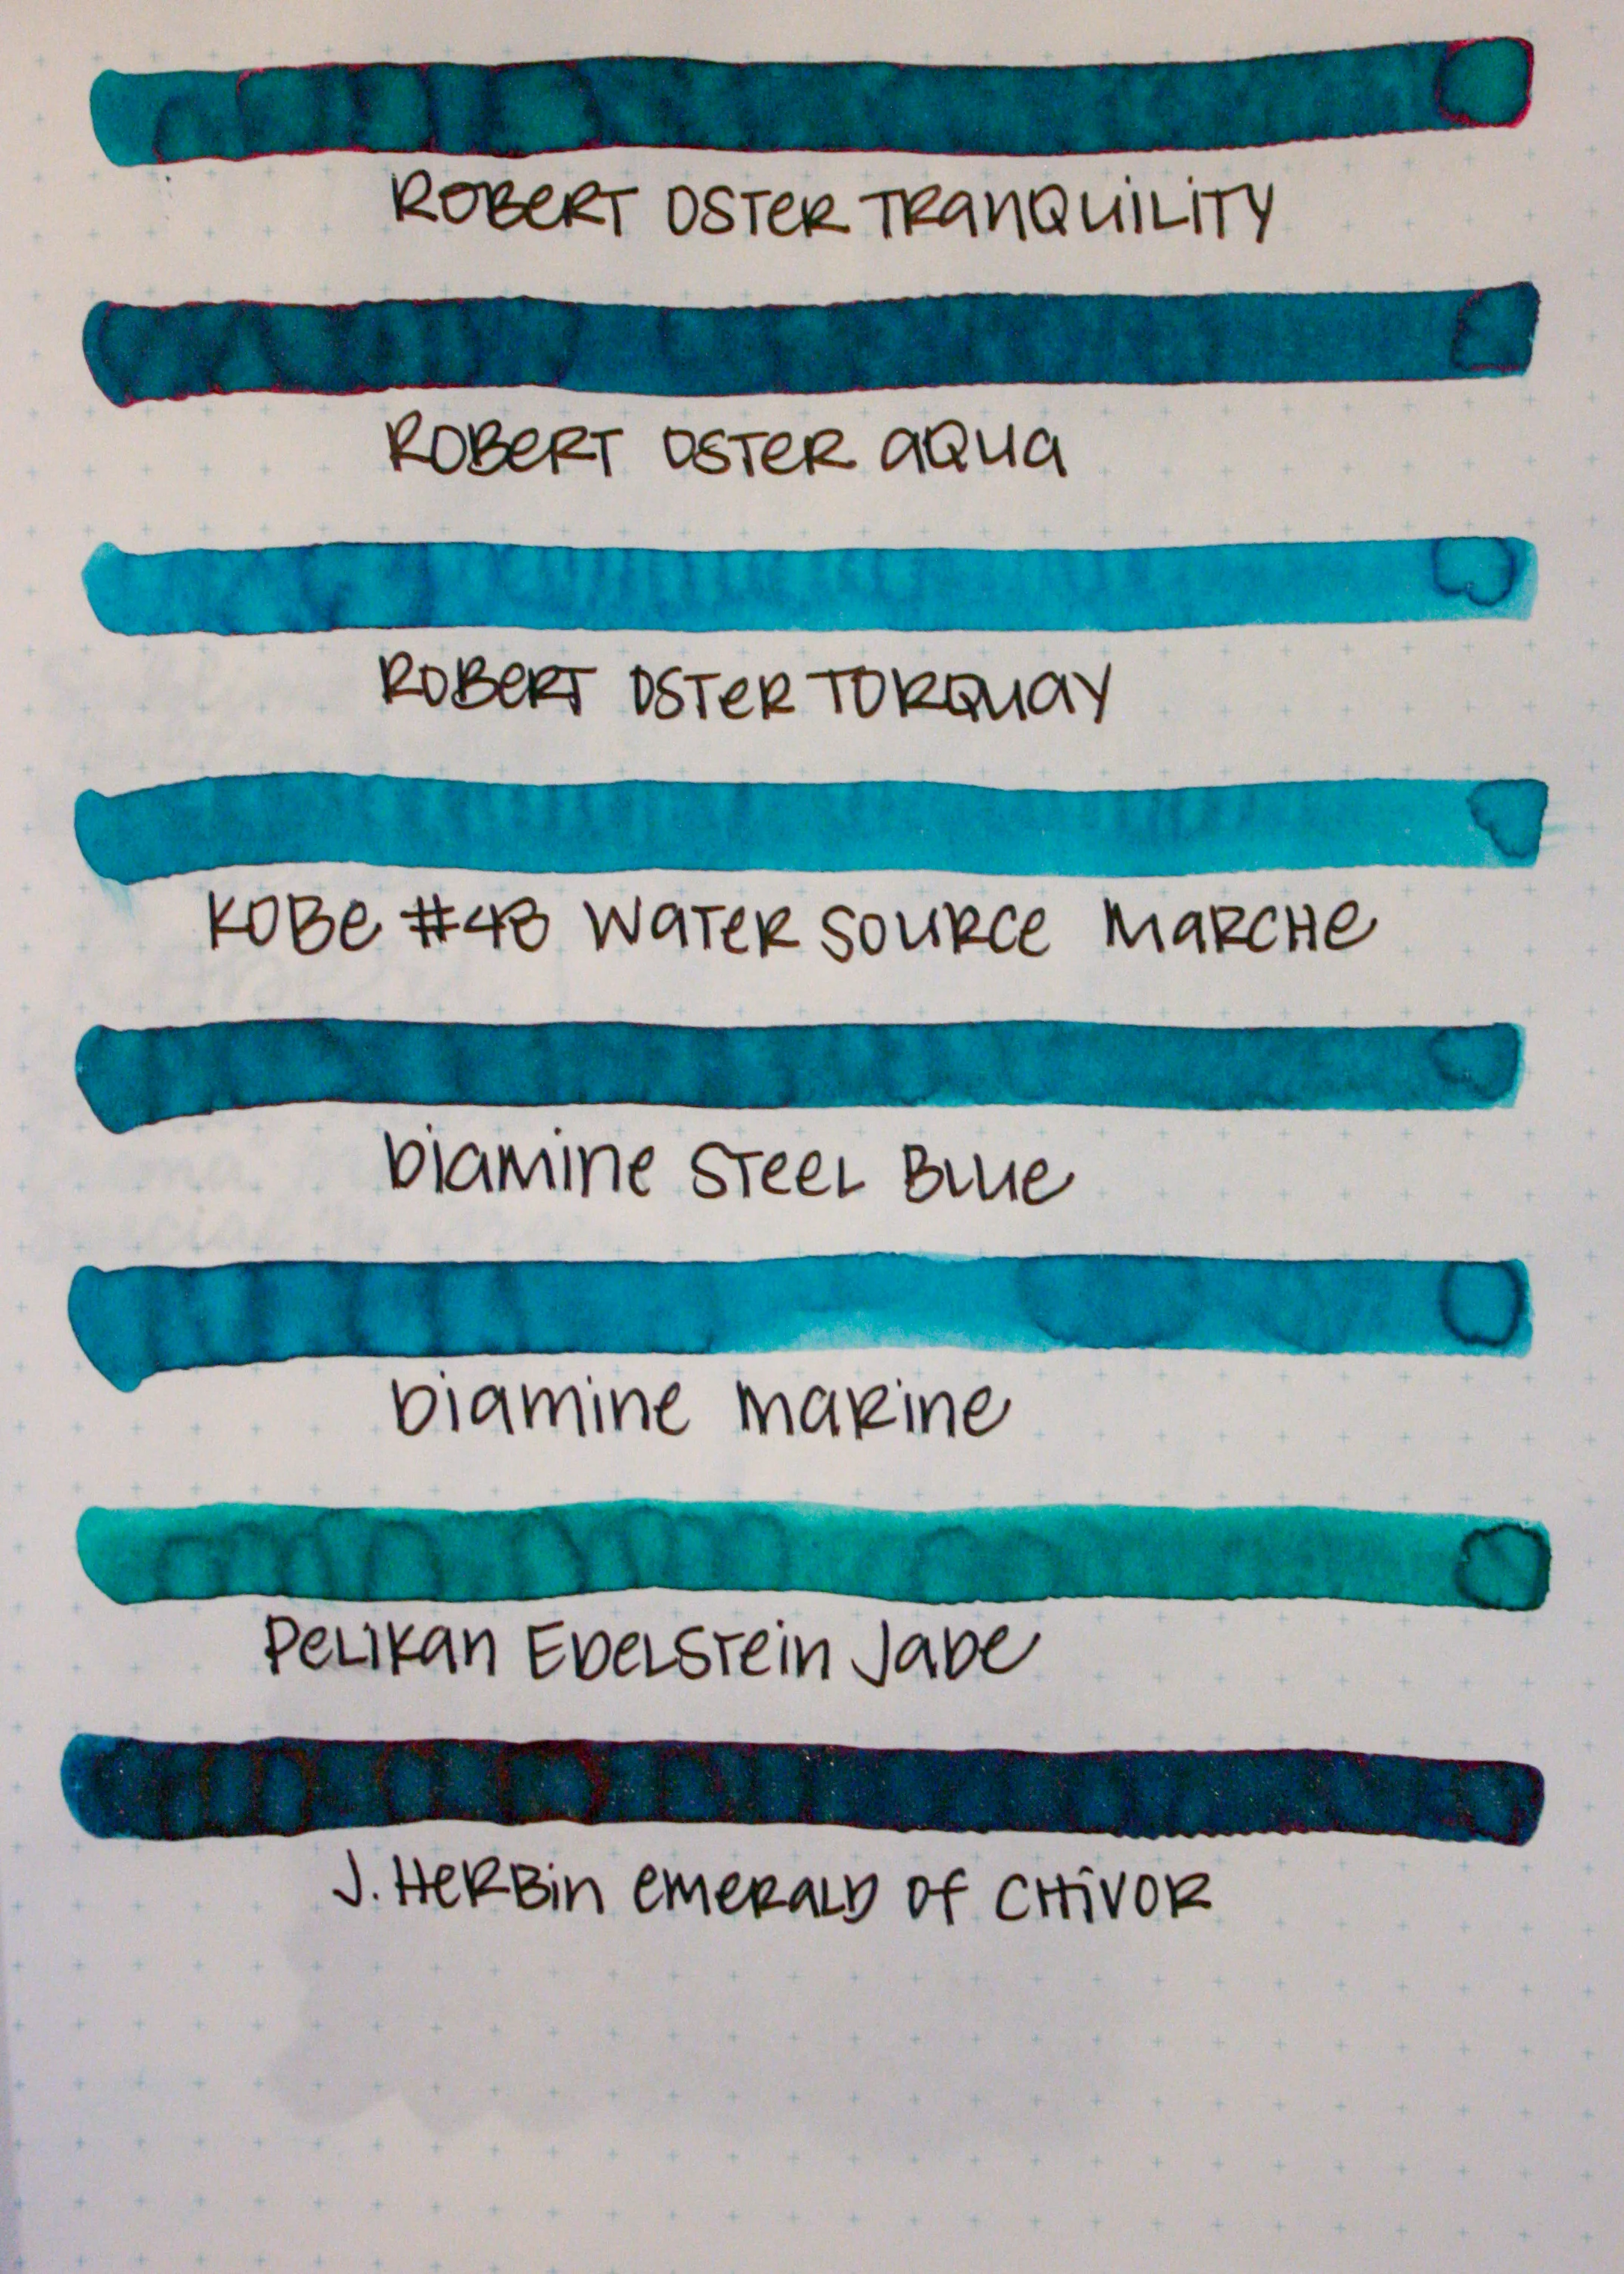 ROBERT OSTER TRANQUILITY
ROBERT OSTER AQUA
ROBERT OSTER TORQUAY
KOBE #43 WATER SOURCE MARCHE
DIAMINE STEEL BLUE
DIAMINE MARINE
PELIKAN EDELSTEIN JADE
J. HERBIN EMERALD OF CHIVOR